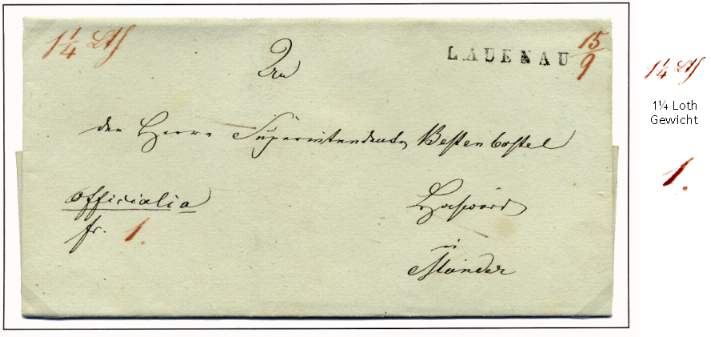 1¼ Lth
LAUENAU 15/9
An
den Herrn Superintendenten Bestenbostel
officialia
Hochwürd
fr. 1.
Münder
1¼ Lth
1¼ Loth
Gewicht
1.